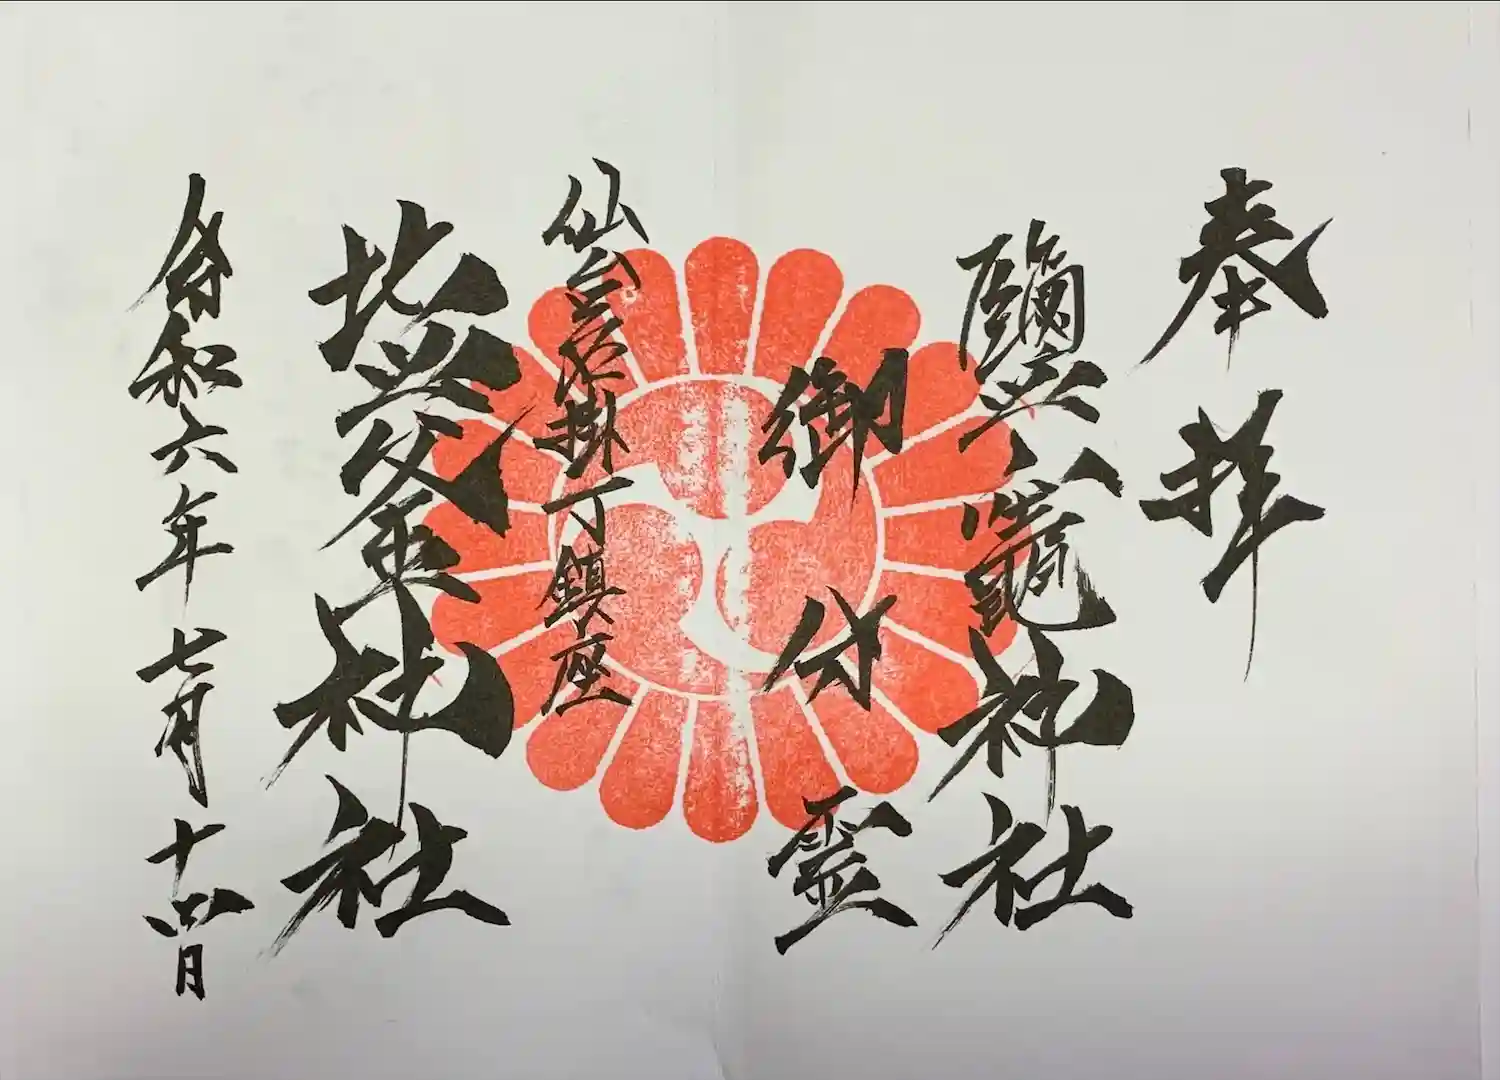 奉拝
鹽竈神社
御分霊
仙台名掛丁鎮座
塩釜神社
令和六年七月十四日